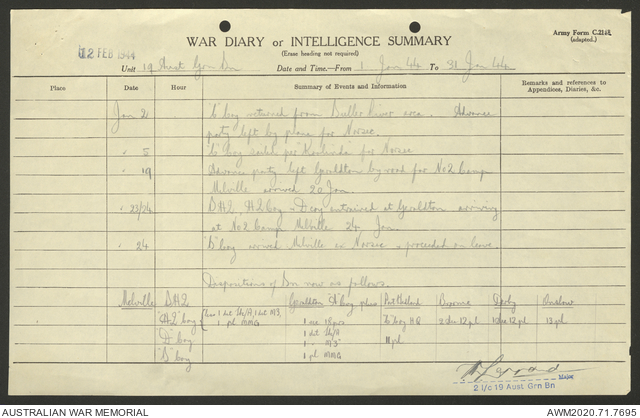 12 FEB 1944
WAR DIARY or INTELLIGENCE SUMMARY
(Erase heading not required)
Army Form C.2118.
(adapted.)
Unit 19 Aust Grn Bn Date and Time.—From 1 Jan 44 To 31 Jan 44
Place Date Hour Summary of Events and Information Remarks and references to Appendices, Diaries, &c.
Jan 2 "C" Coy returned from Buller River area. Advance
party left by plane for Norzec.
" 5 "C" Coy per for Norzec
" 19 Advance party left Geraldton by road for No2 Camp
Melville arrived 20 Jan.
" 23/24 BHQ, HQ Coy & D Coy entrained at Geraldton arriving
at No 2 Camp Melville 24 Jan
" 24 "B" Coy arrived Melville ex Norzec & proceeded on leave.
Dispositions of Bn now as follows.
Melville BHQ Geraldton "A" Coy plus Port Hedland Broome Derby Onslow
"HQ" Coy less 1 det Sh/A, 1 det M3, 1 sec "C" Coy HQ 2 sec 12 pl 1 sec 12 pl 13 pl
1 pl MMG 1 det Sh/A 11 pl
"D" Coy 1 " M3
"B" Coy 1 pl MMG
MAJOR
2 I/c 19 Aust Grn Bn
AUSTRALIAN WAR MEMORIAL AWM2020.71.7695